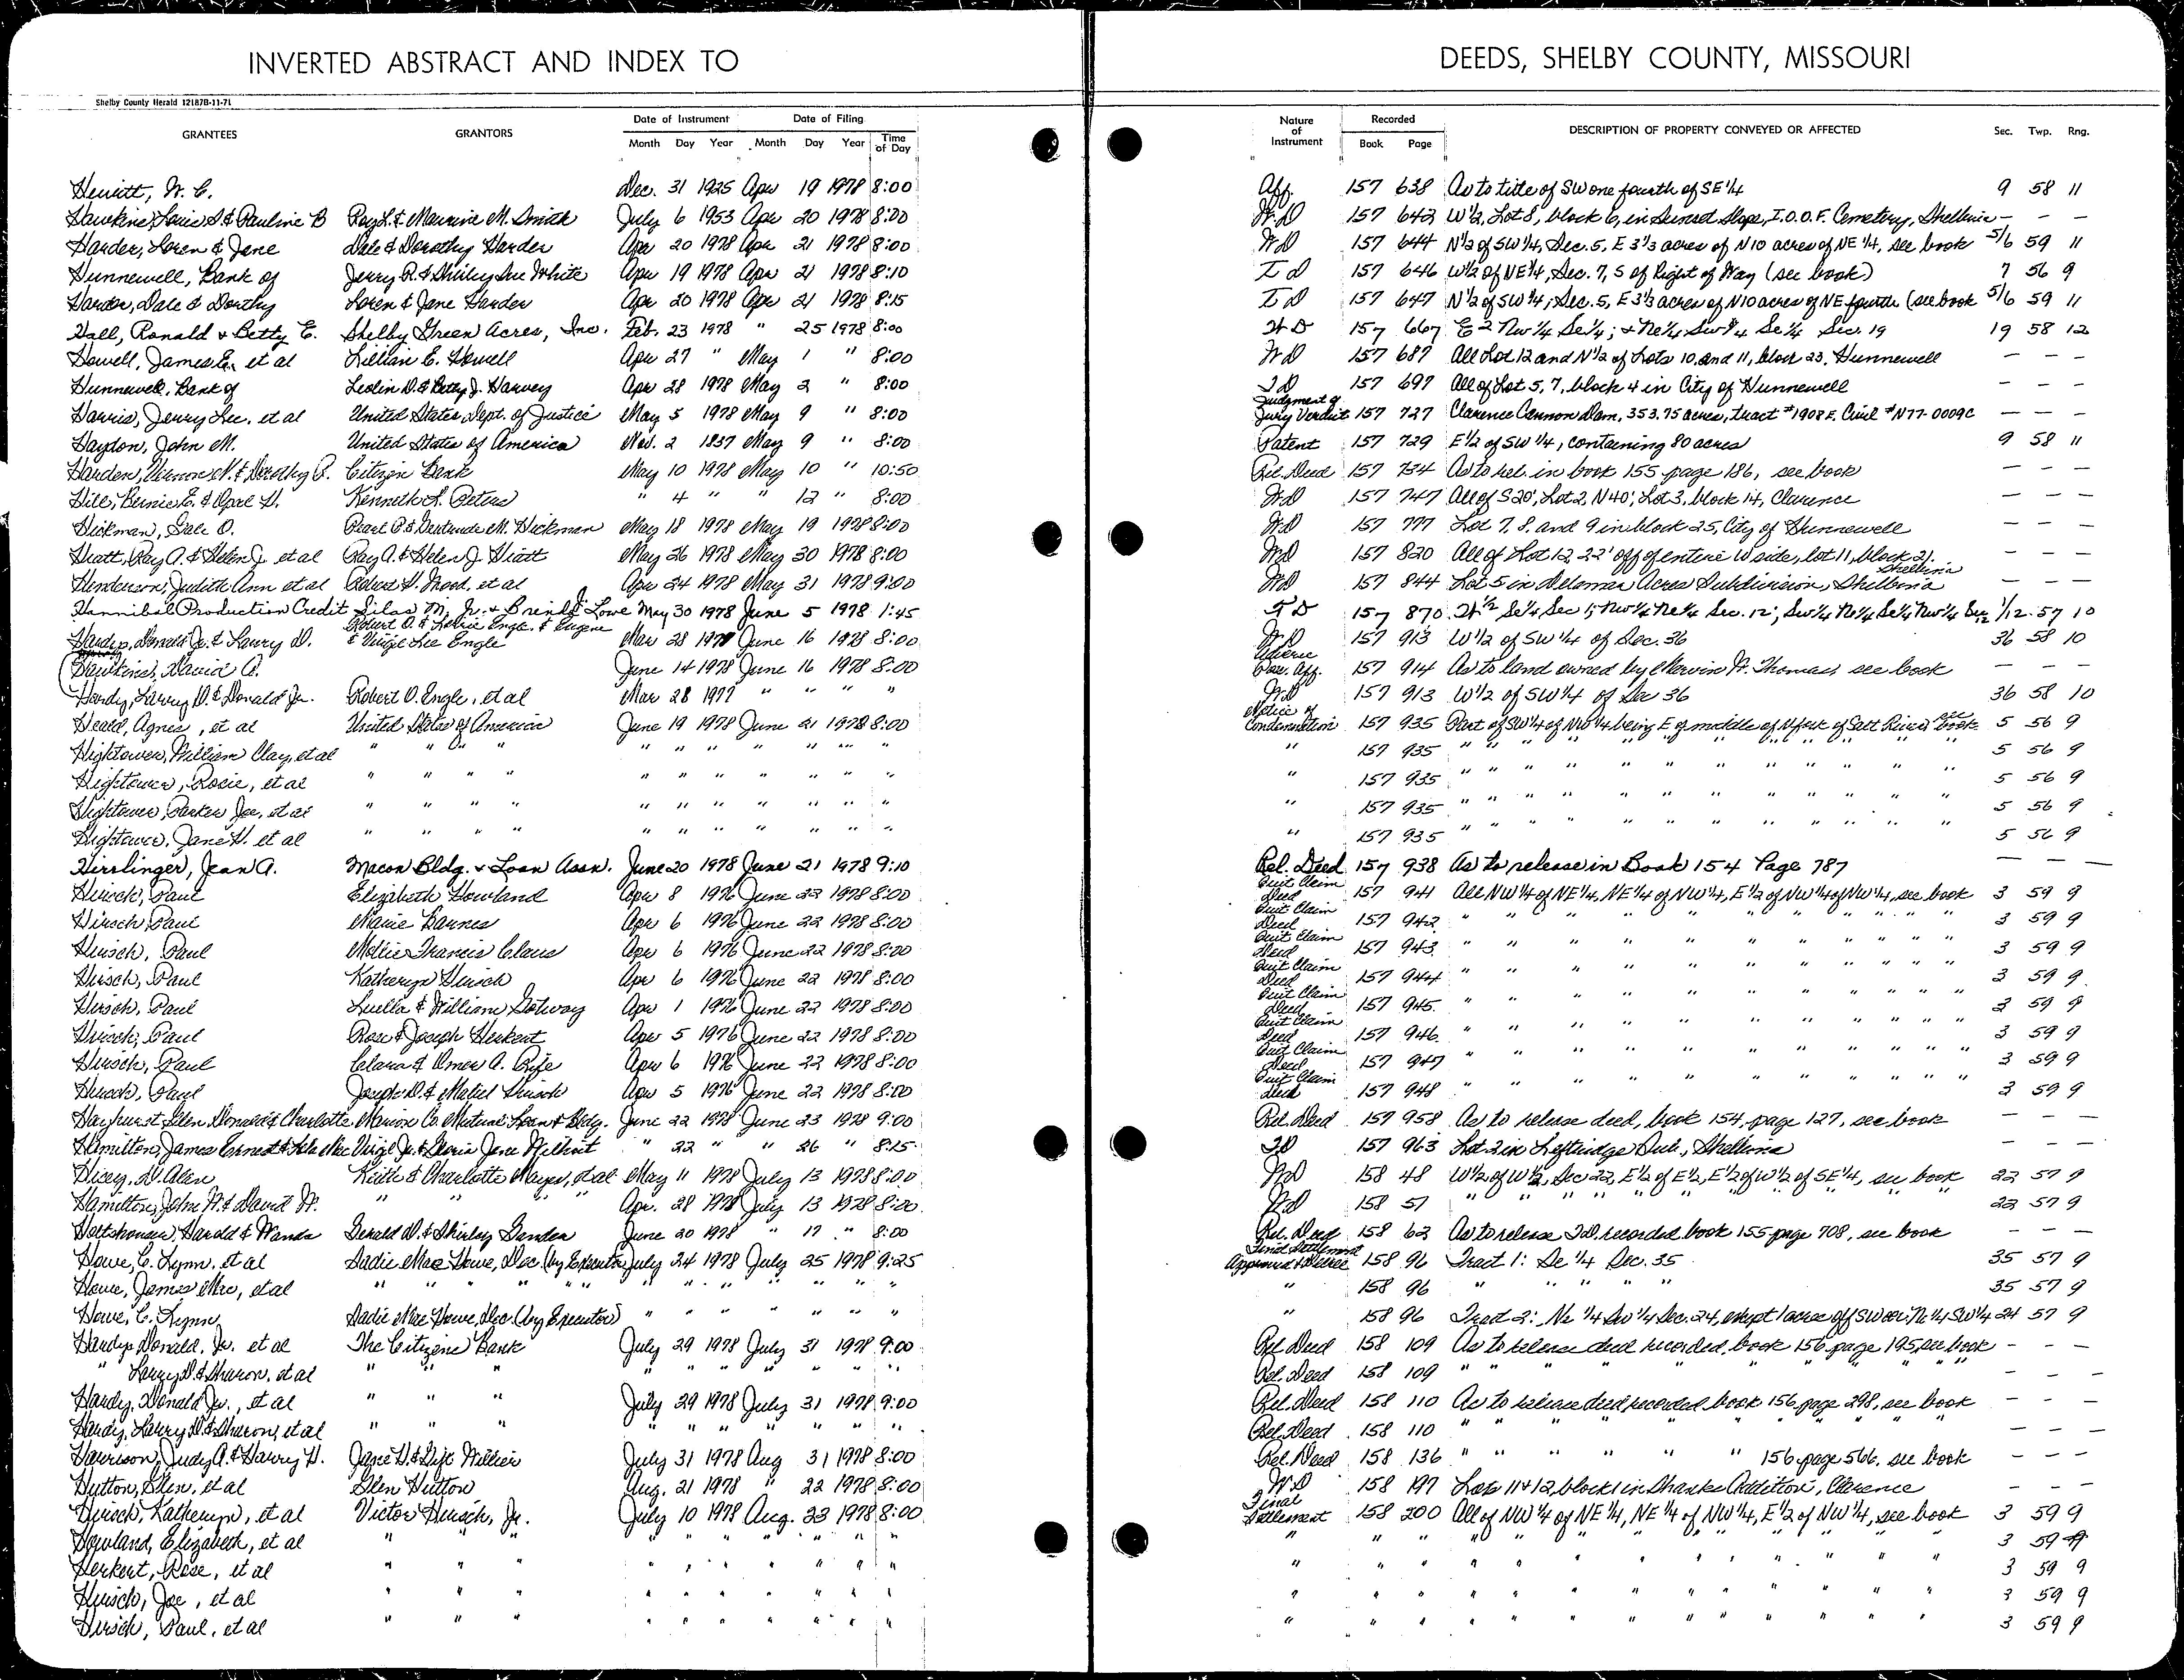 INVERTED ABSTRACT AND INDEX TO DEEDS, SHELBY COUNTY, MISSOURI
Shelby County Herald 12187B-11-71
Date of Instrument Date of Filing Nature of Instrument Recorded
GRANTEES GRANTORS Month Day Year Month Day Year Time of Day Book Page DESCRIPTION OF PROPERTY CONVEYED OR AFFECTED Sec. Twp. Rng.
Hewitt, W. C. Dec. 31 1925 Apr 19 1978 8:00 Aff. 157 638 As to title of SW one fourth of SE 1/4 9 58 11
Hawkins, Louis S. & Pauline B Roy L. & Maurine M. Smith July 6 1953 Apr 20 1978 8:00 W.D 157 642 W 1/2, Lot 8, block 6, in Sunset Slope, I.O.O.F. Cemetery, Shelbina - - -
Harder, Loren & Jane Dale & Dorothy Harder Apr 20 1978 Apr 21 1978 8:00 WD 157 644 N 1/2 of SW 1/4, Sec. 5, E 3 1/3 acres of N 10 acres of NE 1/4, see book 5/6 59 11
Hunnewell, Bank of Jerry R. & Shirley Sue White Apr 19 1978 Apr 21 1978 8:10 T D 157 646 W 1/2 of NE 1/4, Sec. 7, S of Right of Way (see book) 7 56 9
Harder, Dale & Dorthy Loren & Jane Harder Apr 20 1978 Apr 21 1978 8:15 T D 157 647 N 1/2 of SW 1/4, Sec. 5, E 3 1/3 acres of N 10 acres of NE fourth (see book 5/6 59 11
Hall, Ronald & Betty E. Shelby Green Acres, Inc. Feb. 23 1978 " 25 1978 8:00 W D 157 667 E 2 NW 1/4 Se 1/4; & Ne 1/4 Sw 1/4 Se 1/4 Sec. 19 19 58 12
Howell, James E., et al Lillian E. Howell Apr 27 " May 1 " 8:00 WD 157 687 All Lot 12 and N 1/2 of Lots 10 and 11, block 23, Hunnewell - - -
Hunnewell, Bank of Leslin D. & Betty J. Harvey Apr 28 1978 May 2 " 8:00 T D 157 697 All of Lot 5, 7, block 4 in City of Hunnewell - - -
Harris, Jerry Lee, et al United States Dept. of Justice May 5 1978 May 9 " 8:00 Judgment of Jury Verdict 157 727 Clarence Cannon Dam, 353.75 acres, tract #1908 E. Civil #N77-0009C - - -
Haydon, John M. United States of America Nov. 2 1837 May 9 " 8:00 Patent 157 729 E 1/2 of SW 1/4, containing 80 acres 9 58 11
Citizen Bank May 10 1978 May 10 " 10:50 Rel. Deed 157 734 As to rel. in book 155 page 186, see book - - -
Hill, Bernie E. & Opal H. Kenneth L. Peters " 4 " " 12 " 8:00 WD 157 747 All of S 20', Lot 2, N 40', Lot 3, block 14, Clarence - - -
Hickman, Gale O. Pearl P. & Gertrude M. Hickman May 18 1978 May 19 1978 8:00 WD 157 777 Lot 7, 8, and 9 in block 25, City of Hunnewell - - -
Hiatt, Ray A. & Helen J. et al Ray A. & Helen J. Hiatt May 26 1978 May 30 1978 8:00 WD 157 820 All of Lot 12, 22' off of entire W side, lot 11, block 21, Shelbina - - -
Henderson, Judith Ann et al Robert H. Wood, et al Apr 24 1978 May 31 1978 9:00 WD 157 844 Lot 5 in Delomar Acres Subdivision, Shelbina - - -
Hannibal Production Credit Silas M. Jr. & Brenda J. Lowe May 30 1978 June 5 1978 1:45 T D 157 870 W 1/2 Se 1/4 Sec 1; Nw 1/4 Ne 1/4 Sec. 12; Sw 1/4 Ne 1/4 Se 1/4 Nw 1/4 Sec 12 1/12 57 10
Hardy, Donald Jr. & Larry D. Robert O. & Engle & Eugene & Virgil Lee Engle Mar 28 1977 June 16 1978 8:00 WD 157 913 W 1/2 of SW 1/4 of Sec. 36 36 58 10
Hawkins, David A. June 14 1978 June 16 1978 8:00 Adverse Poss. Aff. 157 914 As to land owned by Mervin H. Thomas, see book - - -
Hardy, Larry D. & Donald Jr. Robert O. Engle, et al Mar 28 1977 " " " " WD 157 913 W 1/2 of SW 1/4 of Sec 36 36 58 10
Heald, Agnes, et al United States of America June 19 1978 June 21 1978 8:00 Notice of Condemnation 157 935 Part of SW 1/4 of NW 1/4 being E of middle of N fork of Salt River, see book 5 56 9
Hightower, William Clay, et al " " " " " " " " " " " " 157 935 " " " " " " " " " " 5 56 9
Hightower, Rosie, et al " " " " " " " " " " " " 157 935 " " " " " " " " " " 5 56 9
Hightower, Parker Joe, et al " " " " " " " " " " " " 157 935 " " " " " " " " " " 5 56 9
Hightower, Jane H. et al " " " " " " " " " " " " 157 935 " " " " " " " " " " 5 56 9
Hirrlinger, Jean A. Macon Bldg. & Loan Assn. June 20 1978 June 21 1978 9:10 Rel. Deed 157 938 As to release in Book 154 Page 787 - - -
Hirsch, Paul Elizabeth Howland Apr 8 1976 June 22 1978 8:00 Quit Claim Deed 157 941 All NW 1/4 of NE 1/4, NE 1/4 of NW 1/4, E 1/2 of NW 1/4 of NW 1/4, see book 3 59 9
Hirsch, Paul Marie Barnes Apr 6 1976 June 22 1978 8:00 Quit Claim Deed 157 942 " " " " " " " " " 3 59 9
Hirsch, Paul Mollie Francis Claus Apr 6 1976 June 22 1978 8:00 Quit Claim Deed 157 943 " " " " " " " " " 3 59 9
Hirsch, Paul Katheryn Hirsch Apr 6 1976 June 22 1978 8:00 Quit Claim Deed 157 944 " " " " " " " " " 3 59 9
Hirsch, Paul Luella & William Gotway Apr 1 1976 June 22 1978 8:00 Quit Claim Deed 157 945 " " " " " " " " " 3 59 9
Hirsch, Paul Rose & Joseph Herkert Apr 5 1976 June 22 1978 8:00 Quit Claim Deed 157 946 " " " " " " " " " 3 59 9
Hirsch, Paul Clara & Omer A. Rife Apr 6 1976 June 22 1978 8:00 Quit Claim Deed 157 947 " " " " " " " " " 3 59 9
Hirsch, Paul Joseph D. & Mabel Hirsch Apr 5 1976 June 22 1978 8:00 Quit Claim Deed 157 948 " " " " " " " " " 3 59 9
Hayhurst, Glen Donald & Charlotte Marion Co. Mutual Loan & Bldg. June 22 1978 June 23 1978 9:00 Rel. Deed 157 958 As to release deed, book 154, page 127, see book - - -
Hamilton, James Ernest & Virgil Jr. & Gloria Jane Wilhoit " 22 " " 26 " 8:15 TD 157 963 Lot 2 in Leftridge Sub., Shelbina - - -
Hicey, D. Alan Keith & Charlotte Mayes, et al May 11 1978 July 13 1978 8:00 WD 158 48 W 1/2 of W 1/2, Sec 22, E 1/2 of E 1/2, E 1/2 of W 1/2 of SE 1/4, see book 22 57 9
Hamilton, John W. & David W. " " " Apr. 28 1978 July 13 1978 8:00 WD 158 51 " " " " " " " " 22 57 9
Harold & Wanda Gerald D. & Shirley June 20 1978 " 17 " 8:00 Rel. Deed 158 62 As to release TD. recorded book 155 page 708, see book - - -
Howe, C. Lynn, et al Sadie Mae Howe, Dec. (by Executor) July 24 1978 July 25 1978 9:25 Final Settlement Approved & Decree 158 96 Tract 1: Se 1/4 Sec. 35 35 57 9
Howe, James Mac, et al " " " " " " " " " " " " 158 96 " " " " 35 57 9
Howe, C. Lynn Sadie Mae Howe, Dec. (by Executor) " " " " " " " 158 96 Tract 2: Ne 1/4 Sw 1/4 Sec. 24, except 1 acre off SW cor. Ne 1/4 SW 1/4 24 57 9
Hardy, Donald, Jr. et al The Citizens Bank July 29 1978 July 31 1978 9:00 Rel Deed 158 109 As to release deed recorded, book 156, page 195, see book - - -
" Larry D. & Sharon, et al " " " " " " " " " " Rel. Deed 158 109 " " " " " " " " - - -
Hardy, Donald Jr., et al " " " July 29 1978 July 31 1978 9:00 Rel. Deed 158 110 As to release deed recorded, book 156, page 298, see book - - -
Hardy, Larry D. & Sharon, et al " " " " " " " " " " Rel. Deed 158 110 " " " " " " " " - - -
Harrison, Judy A. & Harry H. Jane H. & Willier July 31 1978 Aug 31 1978 8:00 Rel. Deed 158 136 " " " " " 156, page 566, see book - - -
Hutton, Glen, et al Glen Hutton Aug. 21 1978 " 22 1978 8:00 WD 158 197 Lots 11 & 12, block 1 in Shanks Addition, Clarence - - -
Hirsch, Katheryn, et al Victor Hirsch, Jr. July 10 1978 Aug. 23 1978 8:00 Final Settlement 158 200 All of NW 1/4 of NE 1/4, NE 1/4 of NW 1/4, E 1/2 of NW 1/4, see book 3 59 9
Howland, Elizabeth, et al " " " " " " " " " " " " " " " " " " " " " " 3 59 9
Herkert, Rose, et al " " " " " " " " " " " " " " " " " " " " " " 3 59 9
Hirsch, Joe, et al " " " " " " " " " " " " " " " " " " " " " " 3 59 9
Hirsch, Paul, et al " " " " " " " " " " " " " " " " " " " " " " 3 59 9